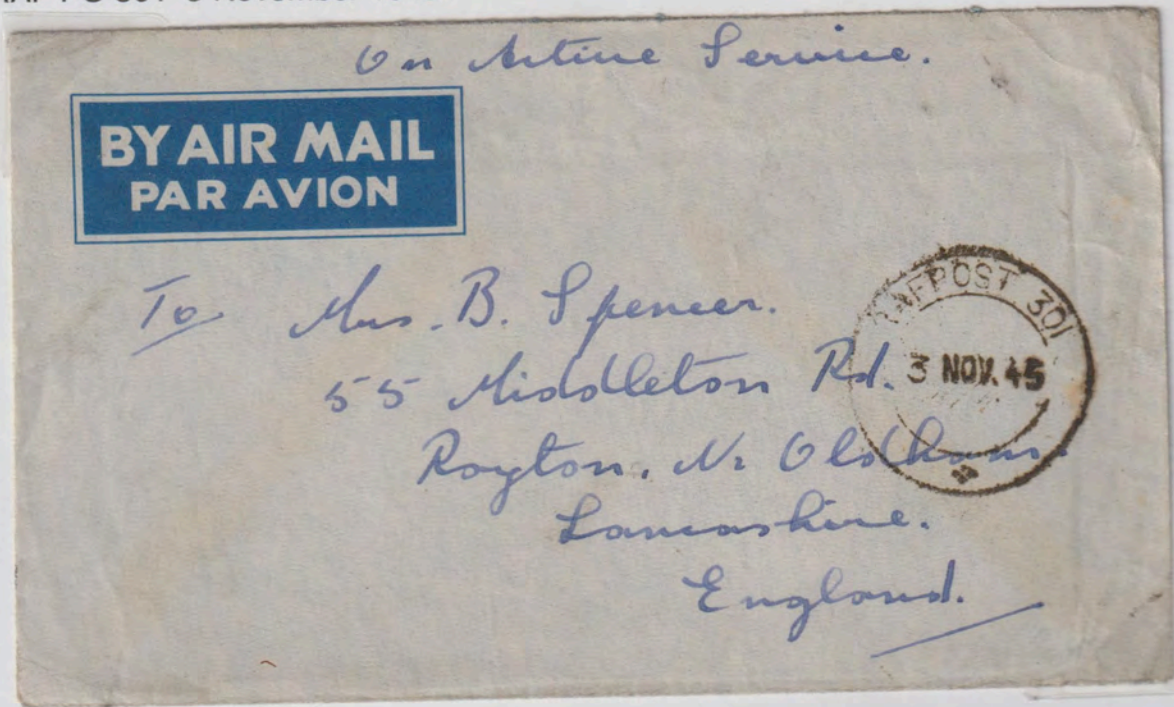 On Active Service.
BY AIR MAIL
PAR AVION
To Mrs. B. Spencer.
55 Middleton Rd.
Royton. Nr Oldham.
Lancashire.
England.
POST 301
3 NOV. 45